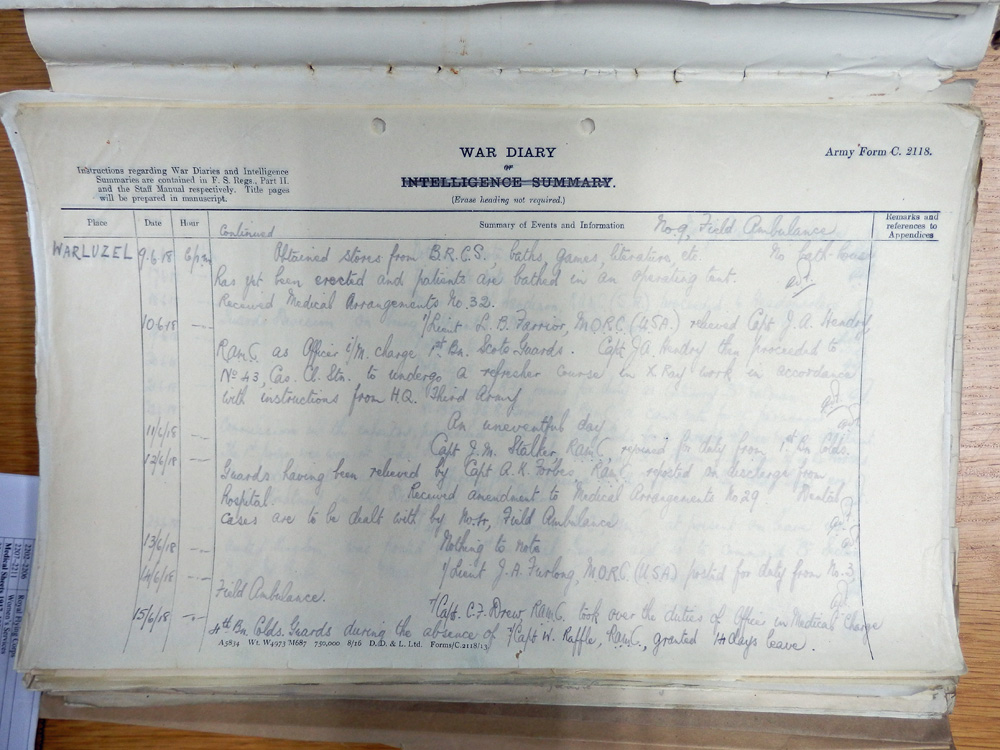 WAR DIARY
or
INTELLIGENCE SUMMARY.
(Erase heading not required.)
Army Form C. 2118.
Instructions regarding War Diaries and Intelligence
Summaries are contained in F. S. Regs., Part II.
and the Staff Manual respectively. Title pages
will be prepared in manuscript.
Place Date Hour Summary of Events and Information Remarks and references to Appendices
Continued No. 9, Field Ambulance
WARLUZEL 9.6.18 6 pm Obtained stores from B.R.C.S. baths, games, literature, etc. No bath-house
has yet been erected and patients are bathed in an operating tent.
Received Medical Arrangements No. 32.
10.6.18 1/Lieut L. B. Farrior, M.O.R.C. (U.S.A.) relieved Capt J. A. Hendry
RAMC as Officer i/M. charge 1st Bn. Scots Guards. Capt J.A. Hendry then proceeded to
No 43, Cas. Cl. Stn. to undergo a refresher course in X Ray work in accordance
with instructions from H.Q. Third Army
11/6/18 An uneventful day
12/6/18 Capt J. M. Stalker, RAMC, rejoined for duty from 1st Bn Colds.
Guards having been relieved by Capt A. K. Forbes, RAMC, reported on discharge from
hospital. Received amendment to Medical Arrangements No. 29. Mental
cases are to be dealt with by No. Field Ambulance
13/6/18 Nothing to note
14/6/18 1/Lieut J. A. Furlong, M.O.R.C. (USA) posted for duty from No. 3,
Field Ambulance.
15/6/18 T/Capt. C. F. Drew RAMC. took over the duties of Officer in Medical Charge
4th Bn. Colds. Guards during the absence of T/Capt W. Raffle, RAMC, granted 14 days leave.
A5834 Wt. W4973 M687 750,000 8/16 D. D. & L. Ltd. Forms/C.2118/13
2202-2206
2207-2211 Royal Flying Corps
Women's Services